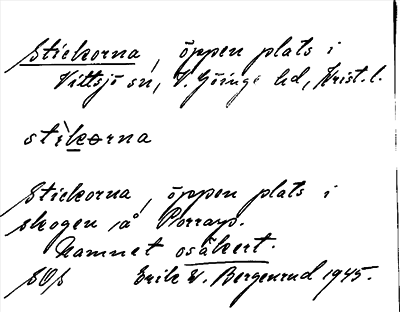 Stickorna, öppen plats i
Vittsjö sn, V. Göinge hd, Krist. l.
stìkorna
Stickorna, öppen plats i
skogen på Porrarp.
Namnet osäkert.
SOS Erik W. Bergenrud 1945.